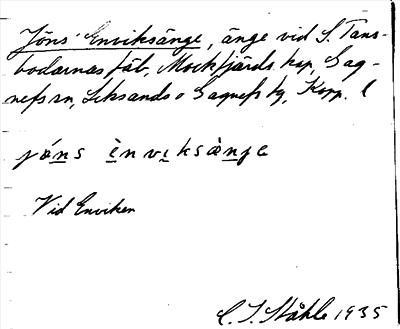 Jöns' Enviksänge, änge vid S. Tans-
bodarnas fäb, Mockfjärds kap, Gag-
nefs sn, Leksands o Gagnefs tg, Kopp. l
jöns ènviksänge
Vid Enviken
C. I. Ståhle 1935